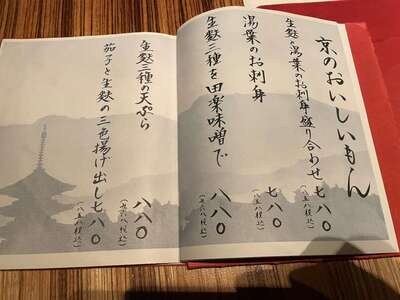 京のおいしいもん
生麩と湯葉のお刺身盛り合わせ 七八〇
(八五八税込)
湯葉のお刺身 七八〇
(八五八税込)
生麩三種を田楽味噌で 八八〇
(九六八税込)
生麩三種の天ぷら 八八〇
(九六八税込)
茄子と生麩の三色揚げ出し 七八〇
(八五八税込)